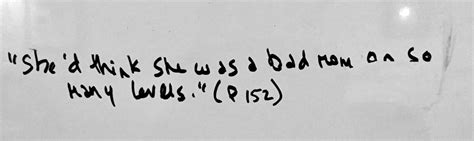 "She'd think she was a bad mom on so
many levels." (P 152)